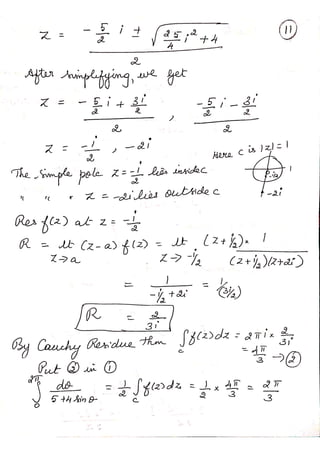 11
z = - 5/2 i ± √(25/4 i² + 4) / 2
After simplifying, we get
z = (- 5/2 i + 3i/2) / 2 , (- 5/2 i - 3i/2) / 2
z = -i/2 , -2i Here C is |z| = 1
The simple pole z = -i/2 lies inside c
" " " z = -2i lies outside c
-i/2
-2i
Res f(z) at z = -i/2
R = lt z→a (z-a) f(z) = lt z→-i/2 (z+i/2) × 1 / (z+i/2)(z+2i)
= 1 / (-i/2 + 2i) = 1 / (3i/2)
R = 2/3i
By Cauchy Residue thm ∫c f(z)dz = 2πi × 2/3i
= 4π/3 → ②
Put ② in ①
∫0^2π dθ / 5+4 sin θ = 1/2 ∫c f(z)dz = 1/2 × 4π/3 = 2π/3